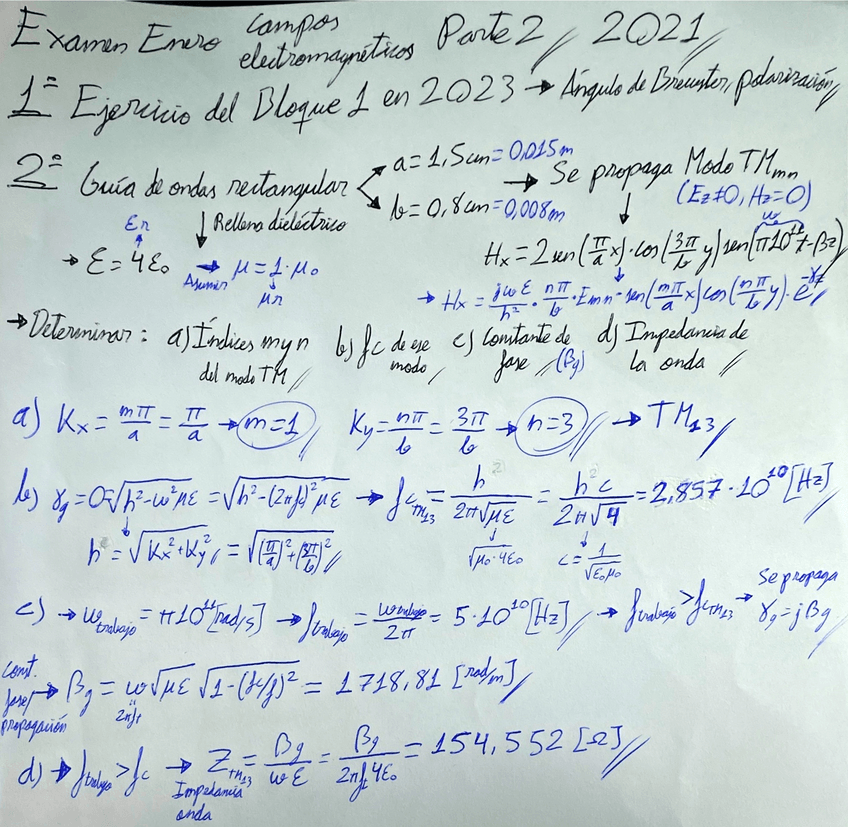 Examen Enero campos electromagnéticos Parte 2 // 2021 //
1º Ejercicio del Bloque 1 en 2023 → Ángulo de Brewster, polarización //
2º Guía de ondas rectangular < a = 1,5cm = 0,015m
b = 0,8cm = 0,008m → Se propaga Modo TMmn
(Ez≠0, Hz=0)
↓ Relleno dieléctrico
εr
→ ε = 4ε0 → Asumir μ = 1·μ0
μr
ω
Hx = 2 sen(π/a x)·cos(3π/b y) sen(π10^11 t - βz)
→ Hx = jωε/h² · nπ/b · Emn · sen(mπ/a x) cos(nπ/b y) · e^-γz //
→ Determinar: a) Índices m y n del modo TM // b) fc de ese modo // c) Constante de fase // (βg) d) Impedancia de la onda //
a) Kx = mπ/a = π/a → m=1 // Ky = nπ/b = 3π/b → n=3 // → TM13 //
b) γg = 0 = √(h²-ω²με) = √(h²-(2πfc)²με) → fcTM13 = h/(2π√με) = h c/(2π√4) = 2,857·10^10 [Hz] //
√μ0·4ε0 c = 1/√ε0μ0
h = √(Kx²+Ky²) = √((π/a)²+(3π/b)²) //
c) → ωtrabajo = π10^11 [rad/s] → ftrabajo = ωtrabajo/2π = 5·10^10 [Hz] // → ftrabajo > fcTM13 → Se propaga
γg = jβg //
const. fase/propagación → βg = ω√με √(1-(fc/f)²) = 1718,81 [rad/m] //
2πft
d) → ftrabajo > fc → ZTM13 = βg/ωε = βg/(2πft 4ε0) = 154,552 [Ω] //
Impedancia onda